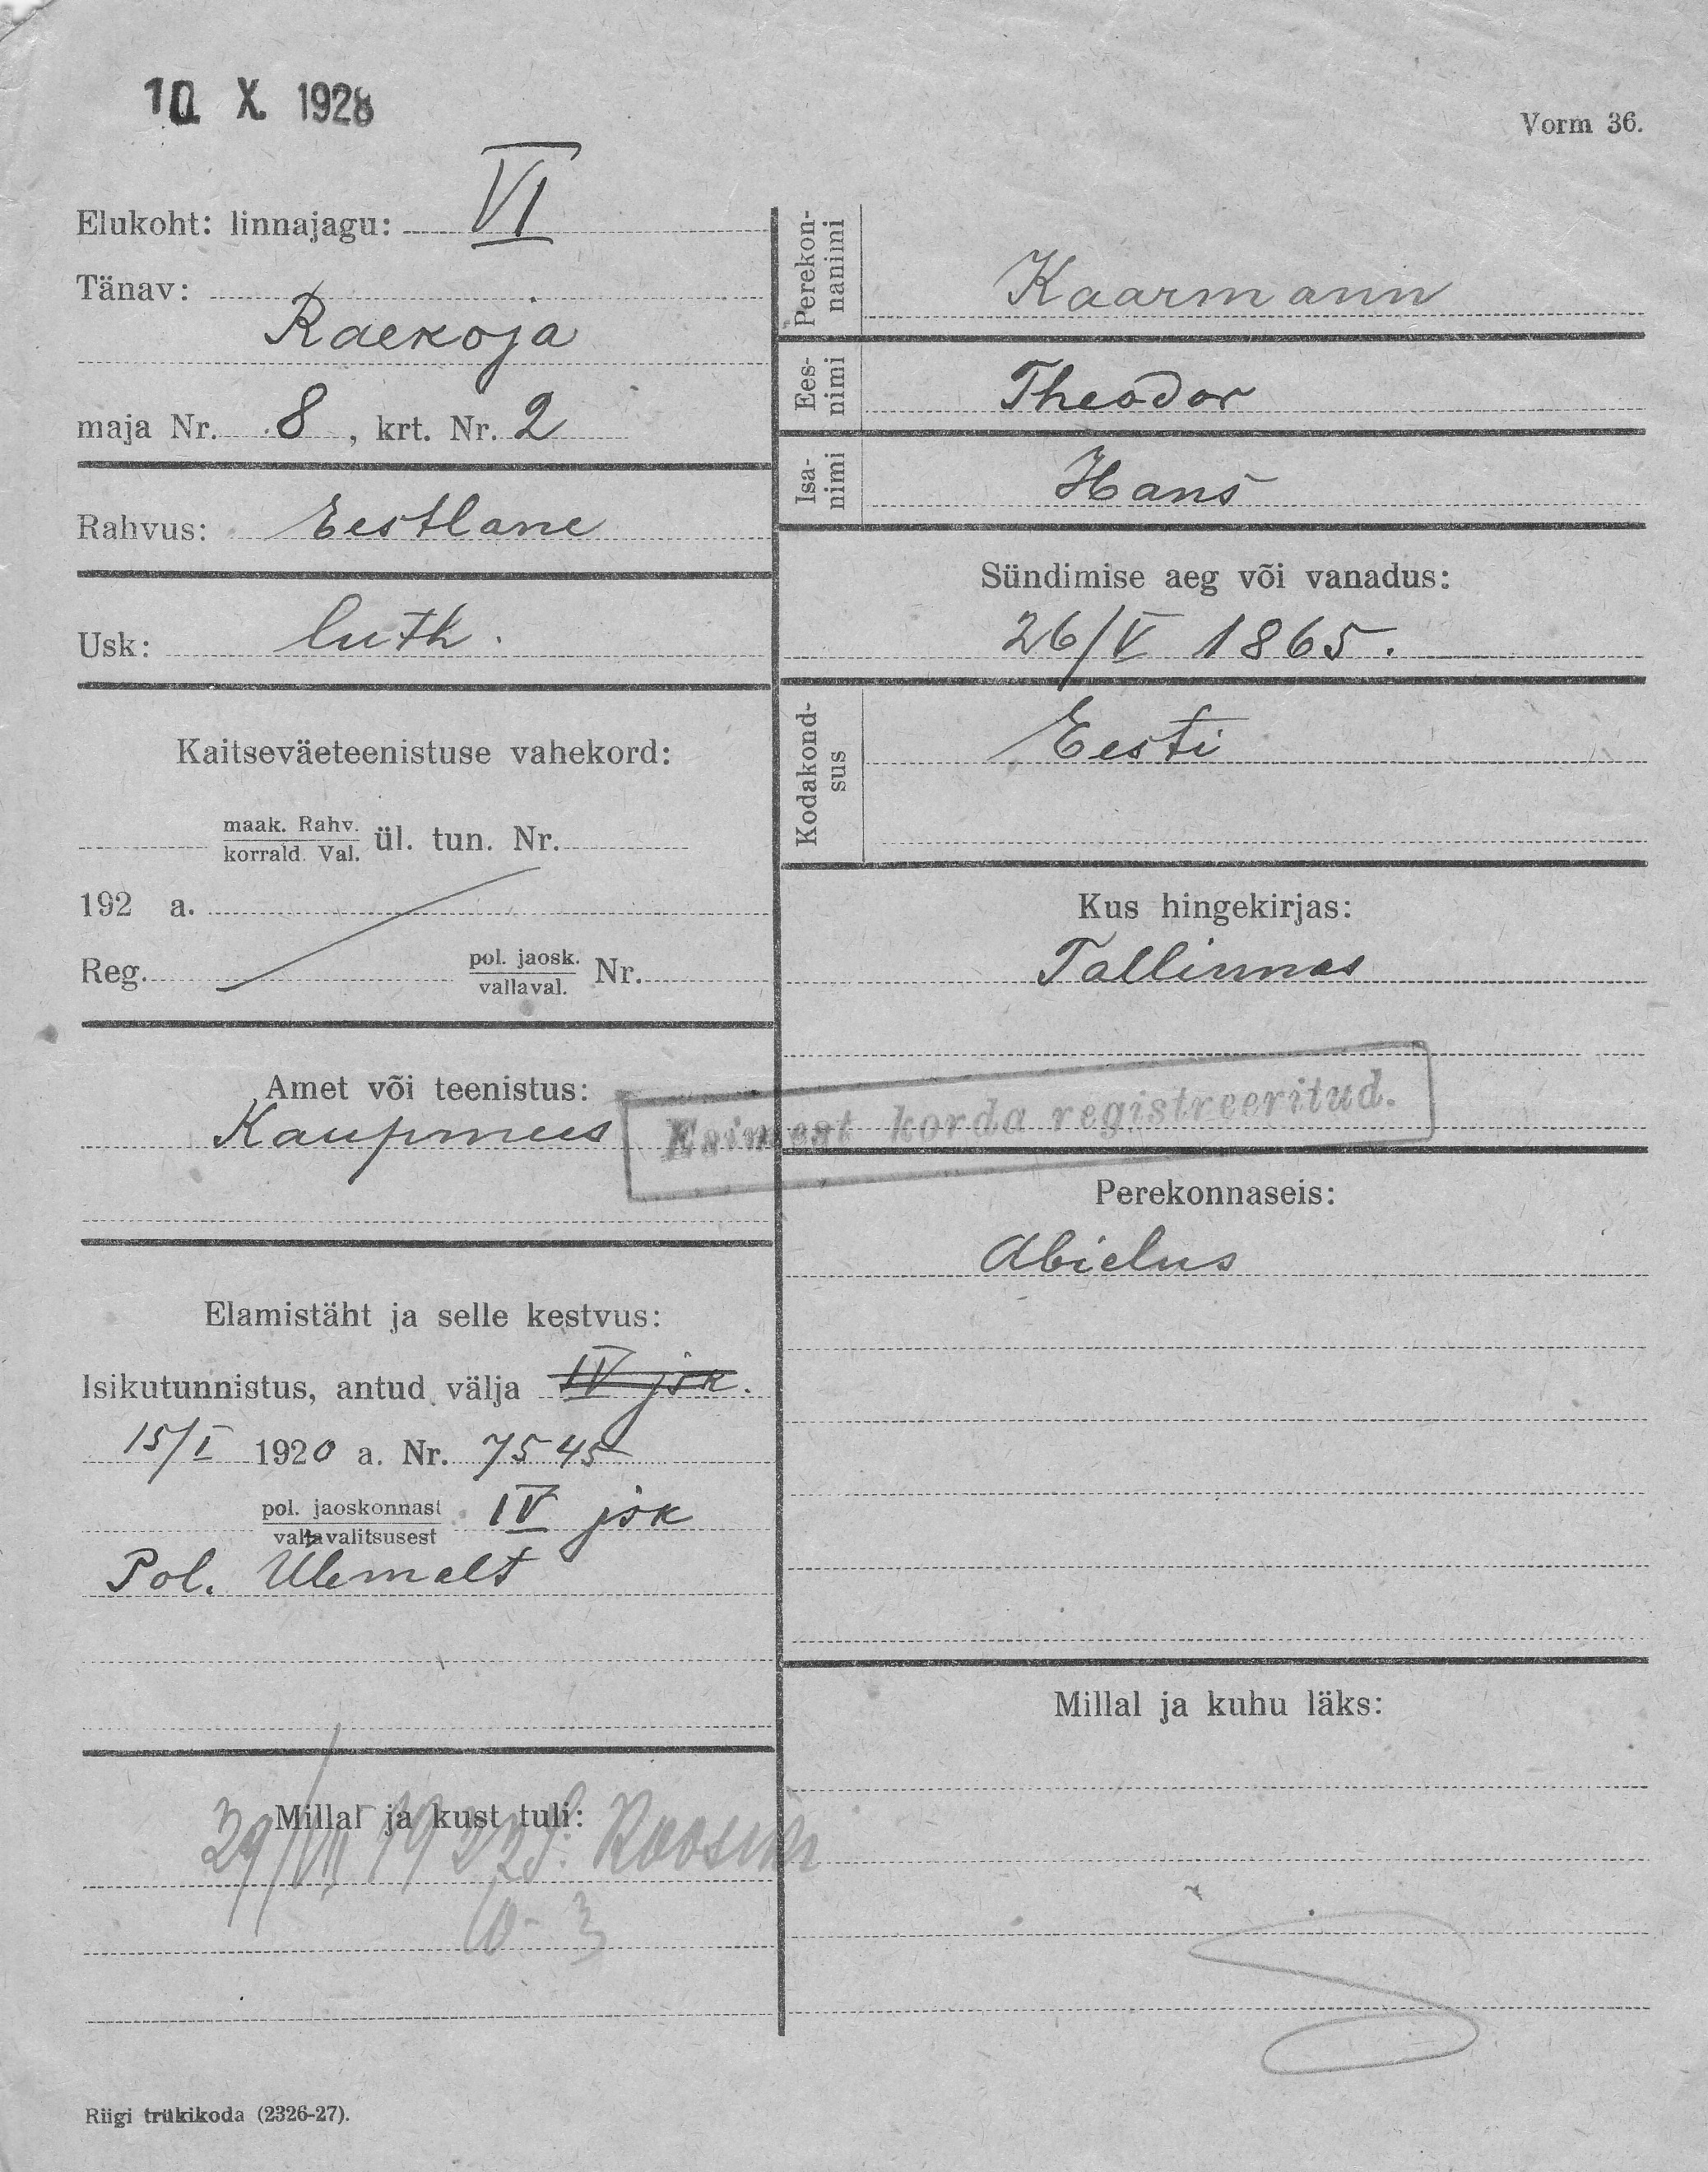 10. X. 1928
Vorm 36.
Elukoht: linnajagu: VI
Tänav:
Raekoja
maja Nr. 8, krt. Nr. 2
Rahvus: Eestlane
Usk: luth.
Kaitseväeteenistuse vahekord:
maak. Rahv.
korrald. Val. ül. tun. Nr.
192 a.
Reg. pol. jaosk.
vallaval. Nr.
Amet või teenistus:
Kaupmees
Elamistäht ja selle kestvus:
Isikutunnistus, antud välja IV jsk.
15/I 1920 a. Nr. 7545
pol. jaoskonnast IV jsk
vallavalitsusest
Pol. Ülemalt
Millal ja kust tuli:
10-3
Riigi trükikoda (2326-27).
Perekon-
nanimi
Kaarmann
Ees-
nimi
Theodor
Isa-
nimi
Hans
Sündimise aeg või vanadus:
26/V 1865.
Kodakond-
sus
Eesti
Kus hingekirjas:
Tallinnas
Esimest korda registreeritud.
Perekonnaseis:
Abielus
Millal ja kuhu läks: